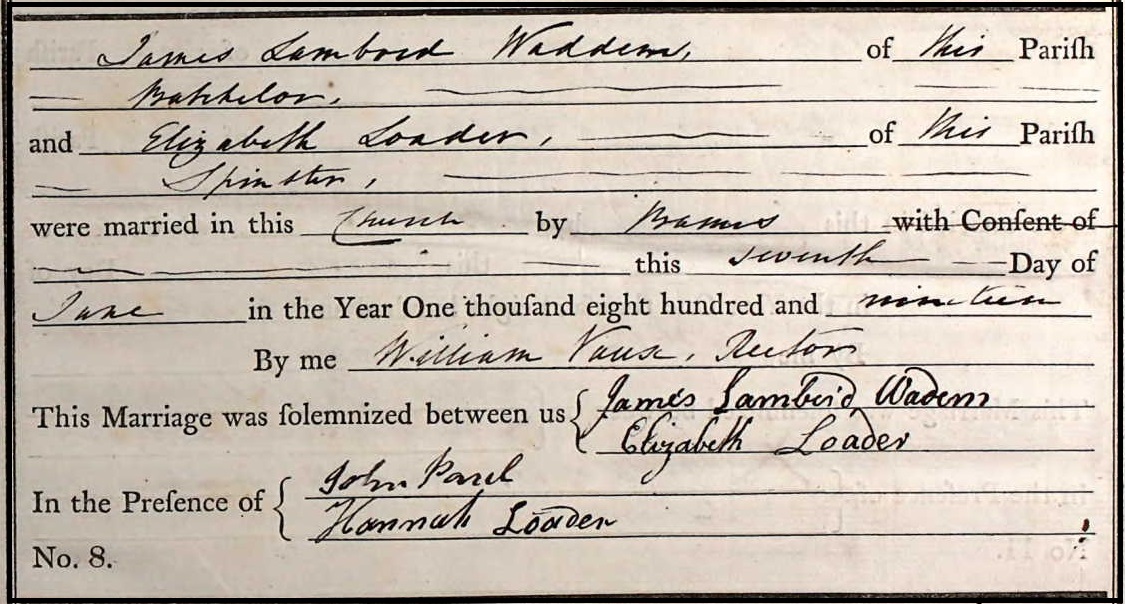 James Lambord Waddem, of this Pariſh
Batchelor,
and Elizabeth Loader, of this Pariſh
Spinster,
were married in this Church by Banns with Conſent of
this seventh Day of
June in the Year One thouſand eight hundred and nineteen
By me William Vaux, Rector
This Marriage was ſolemnized between us { James Lambird Wadem
Elizabeth Loader
In the Preſence of { John
Hannah Loader
No. 8.